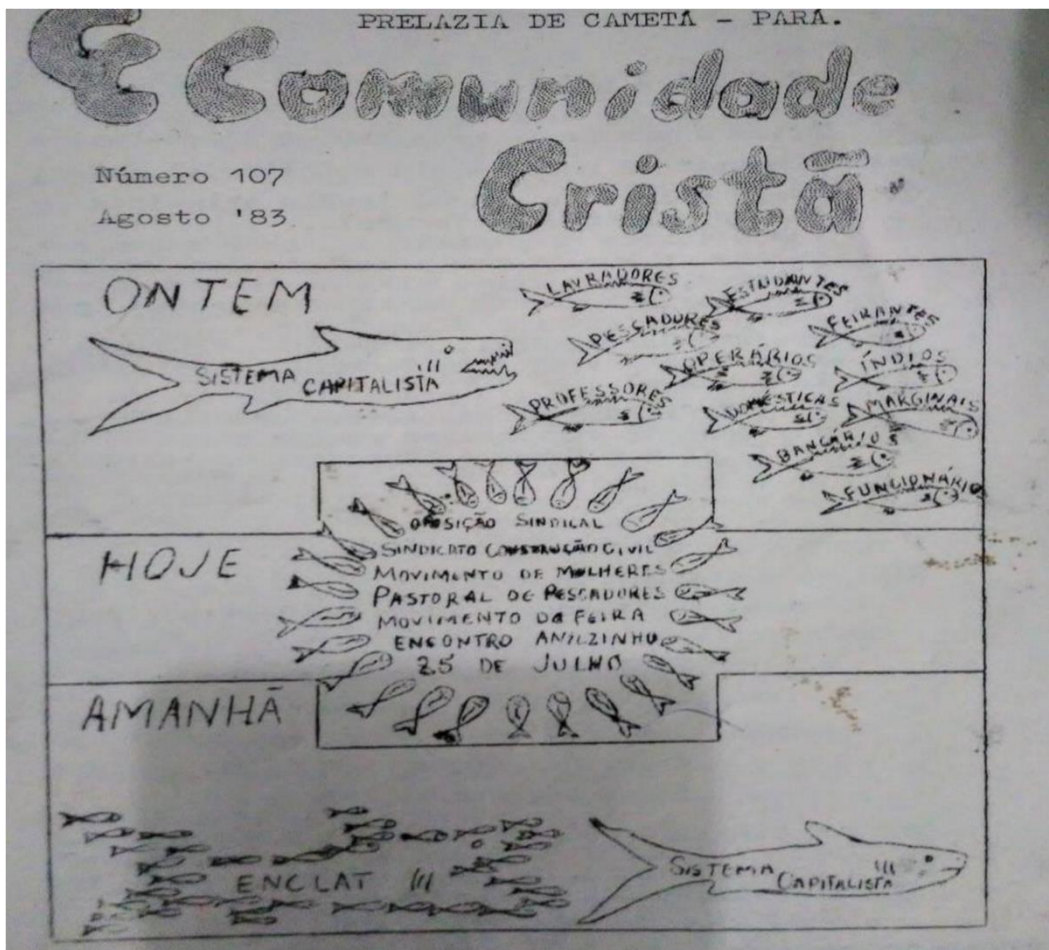 PRELAZIA DE CAMETÁ - PARÁ.
CC Comunidade
Cristã
Número 107
Agosto '83
ONTEM
SISTEMA CAPITALISTA
LAVRADORES
ESTUDANTES
PESCADORES
FEIRANTES
OPERÁRIOS
ÍNDIOS
PROFESSORES
DOMÉSTICAS
MARGINAIS
BANCÁRIOS
FUNCIONÁRIO
HOJE
OPOSIÇÃO SINDICAL
SINDICATO CONSTRUÇÃO CIVIL
MOVIMENTO DE MULHERES
PASTORAL DE PESCADORES
MOVIMENTO DA FEIRA
ENCONTRO ANILZINHO
25 DE JULHO
AMANHÃ
ENCLAT
SISTEMA CAPITALISTA